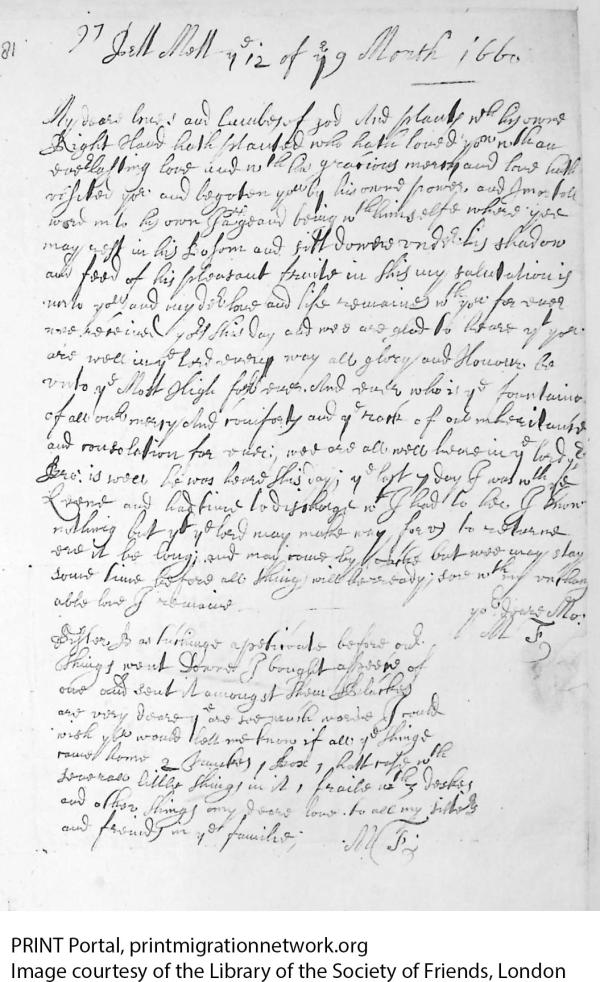 81
Pell Mell ye 12 of ye 9 Month 1660
My deare loves and Lambes of god And plants wth his owne
Right Hand hath planted who hath loved you wth an
everlasting love and wth his gracious mercy and love hath
visited you and begoten you by his owne power and
word into his own Image and being wth himselfe where yee
may rest in his Bosom and sitt downe under his shadow
and feed of his pleasant fruite in this my salutation is
unto you and my love and life remaines wth you for ever
wee received yors this day and wee are glad to heare yt you
are well in ye lord every way all glory and Honour be
unto ye Most High for ever And ever who is ye fountaine
of all our mercy And comforts and ye rock of our inheritance
and consolation for ever; wee are all well heere in ye lord
is well he was heare this day; ye last 7 day I was wth ye
Queene and had time to discharge wt I had to her I know
nothing but yt ye lord may make way for us to returne
ere it be long; and may come by but wee may stay
some time before all things will be ready; soe wth my unchang
able love I remaine
yor deare Mo:
M F
before our
things went Downe I bought a peece of
one and sent it amongst them
are very deare ye are soe much worse I could
wish you would lett me know if all ye things
came home 2 Trunkes 1 Box 1 hatt case wth
severall little things in it 1 fraile wth 3
and other things my deare love to all my sisters
and freinds in ye familie;
M F;
PRINT Portal, printmigrationnetwork.org
Image courtesy of the Library of the Society of Friends, London